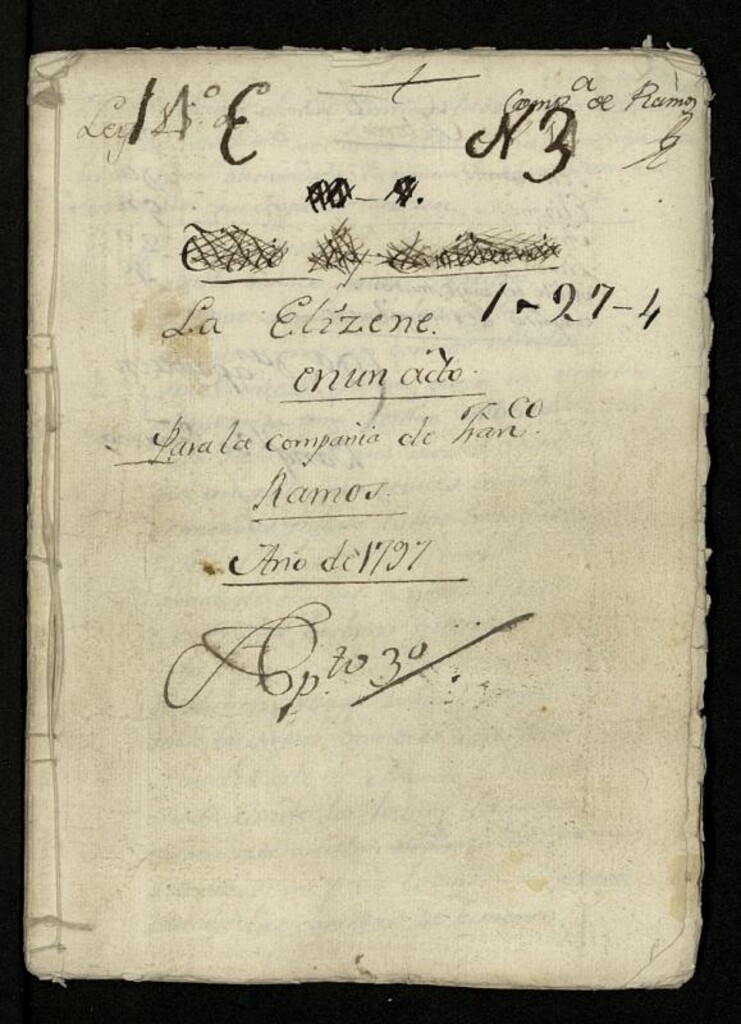 Leg 11º E
Compª de Ramos
N 3
1-27-4
La Elizene.
en un acto.
Para la compañia de Franco.
Ramos.
Año de 1797
Apto 3º